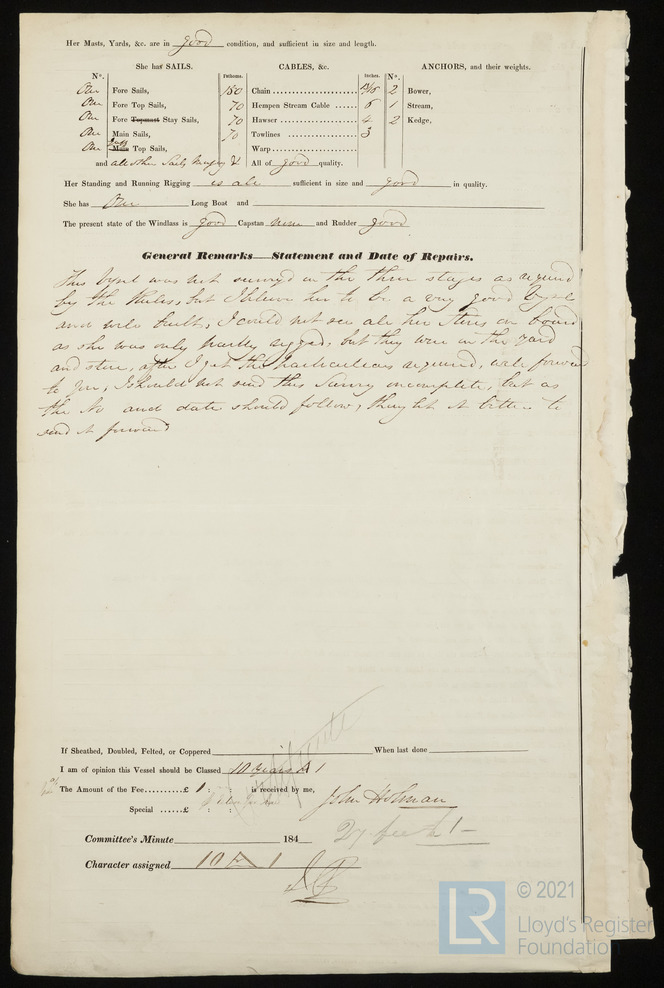 Her Masts, Yards, &c. are in good condition, and sufficient in size and length.
She has SAILS. CABLES, &c. ANCHORS, and their weights.
Nº. Fathoms. Inches. Nº.
One Fore Sails, 150 Chain 2 Bower,
One Fore Top Sails, 70 Hempen Stream Cable 6 1 Stream,
One Fore Topmast Stay Sails, 70 Hawser 4 2 Kedge,
One Main Sails, 70 Towlines 3
One Main Top Sails, Warp
and all other Sails All of good quality.
Her Standing and Running Rigging is all sufficient in size and good in quality.
She has One Long Boat and
The present state of the Windlass is good Capstan none and Rudder good
General Remarks—Statement and Date of Repairs.
This Vessel was not survey'd in the three stages as required
by the Rules, but I believe her to be a very good Vessel
and well built, I could not see all her Stores on board
as she was only partly rigged, but they were in the Yard
and store, after I get the particulars required, will forward
to you, I should not send this Survey incomplete, but as
the No and date should follow, thought it better to
send it forward
If Sheathed, Doubled, Felted, or Coppered When last done
I am of opinion this Vessel should be Classed 10 Years A 1
The Amount of the Fee £ 1 : : is received by me,
John Holman
Special £ : :
Committee's Minute 184
Character assigned 10 A 1
LR
© 2021
Lloyd's Register
Foundation